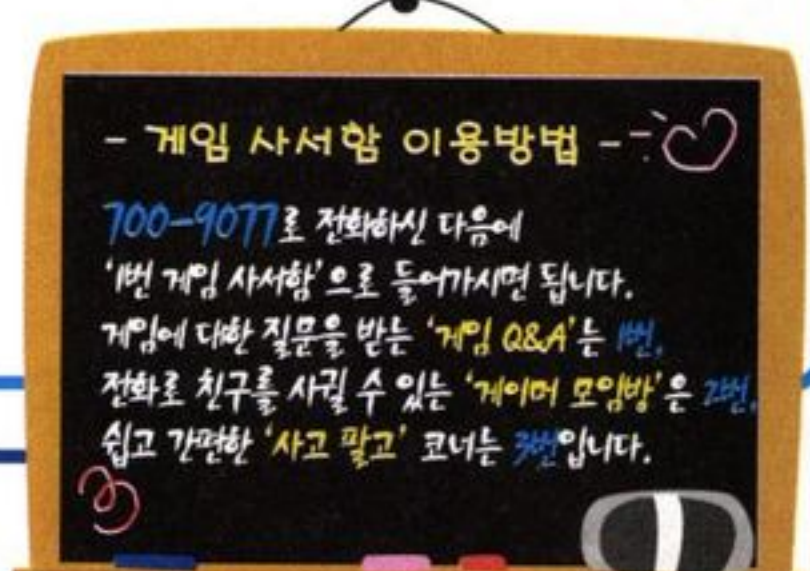 - 게임 사서함 이용방법 -
700-9077로 전화하신 다음에
'1번 게임 사서함'으로 들어가시면 됩니다.
게임에 대한 질문을 받는 '게임 Q&A'는 1번,
전화로 친구를 사귈 수 있는 '게이머 모임방'은 2번,
쉽고 간편한 '사고 팔고' 코너는 3번입니다.